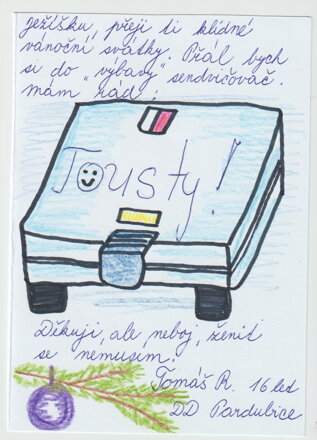 Ježíšku, přeji ti klidné
vánoční svátky. Přál bych
si do „výbavy" sendvičovač.
mám rád:
Tousty!
Děkuji, ale neboj, ženit
se nemusím.
Tomáš R. 16 let
DD Pardubice